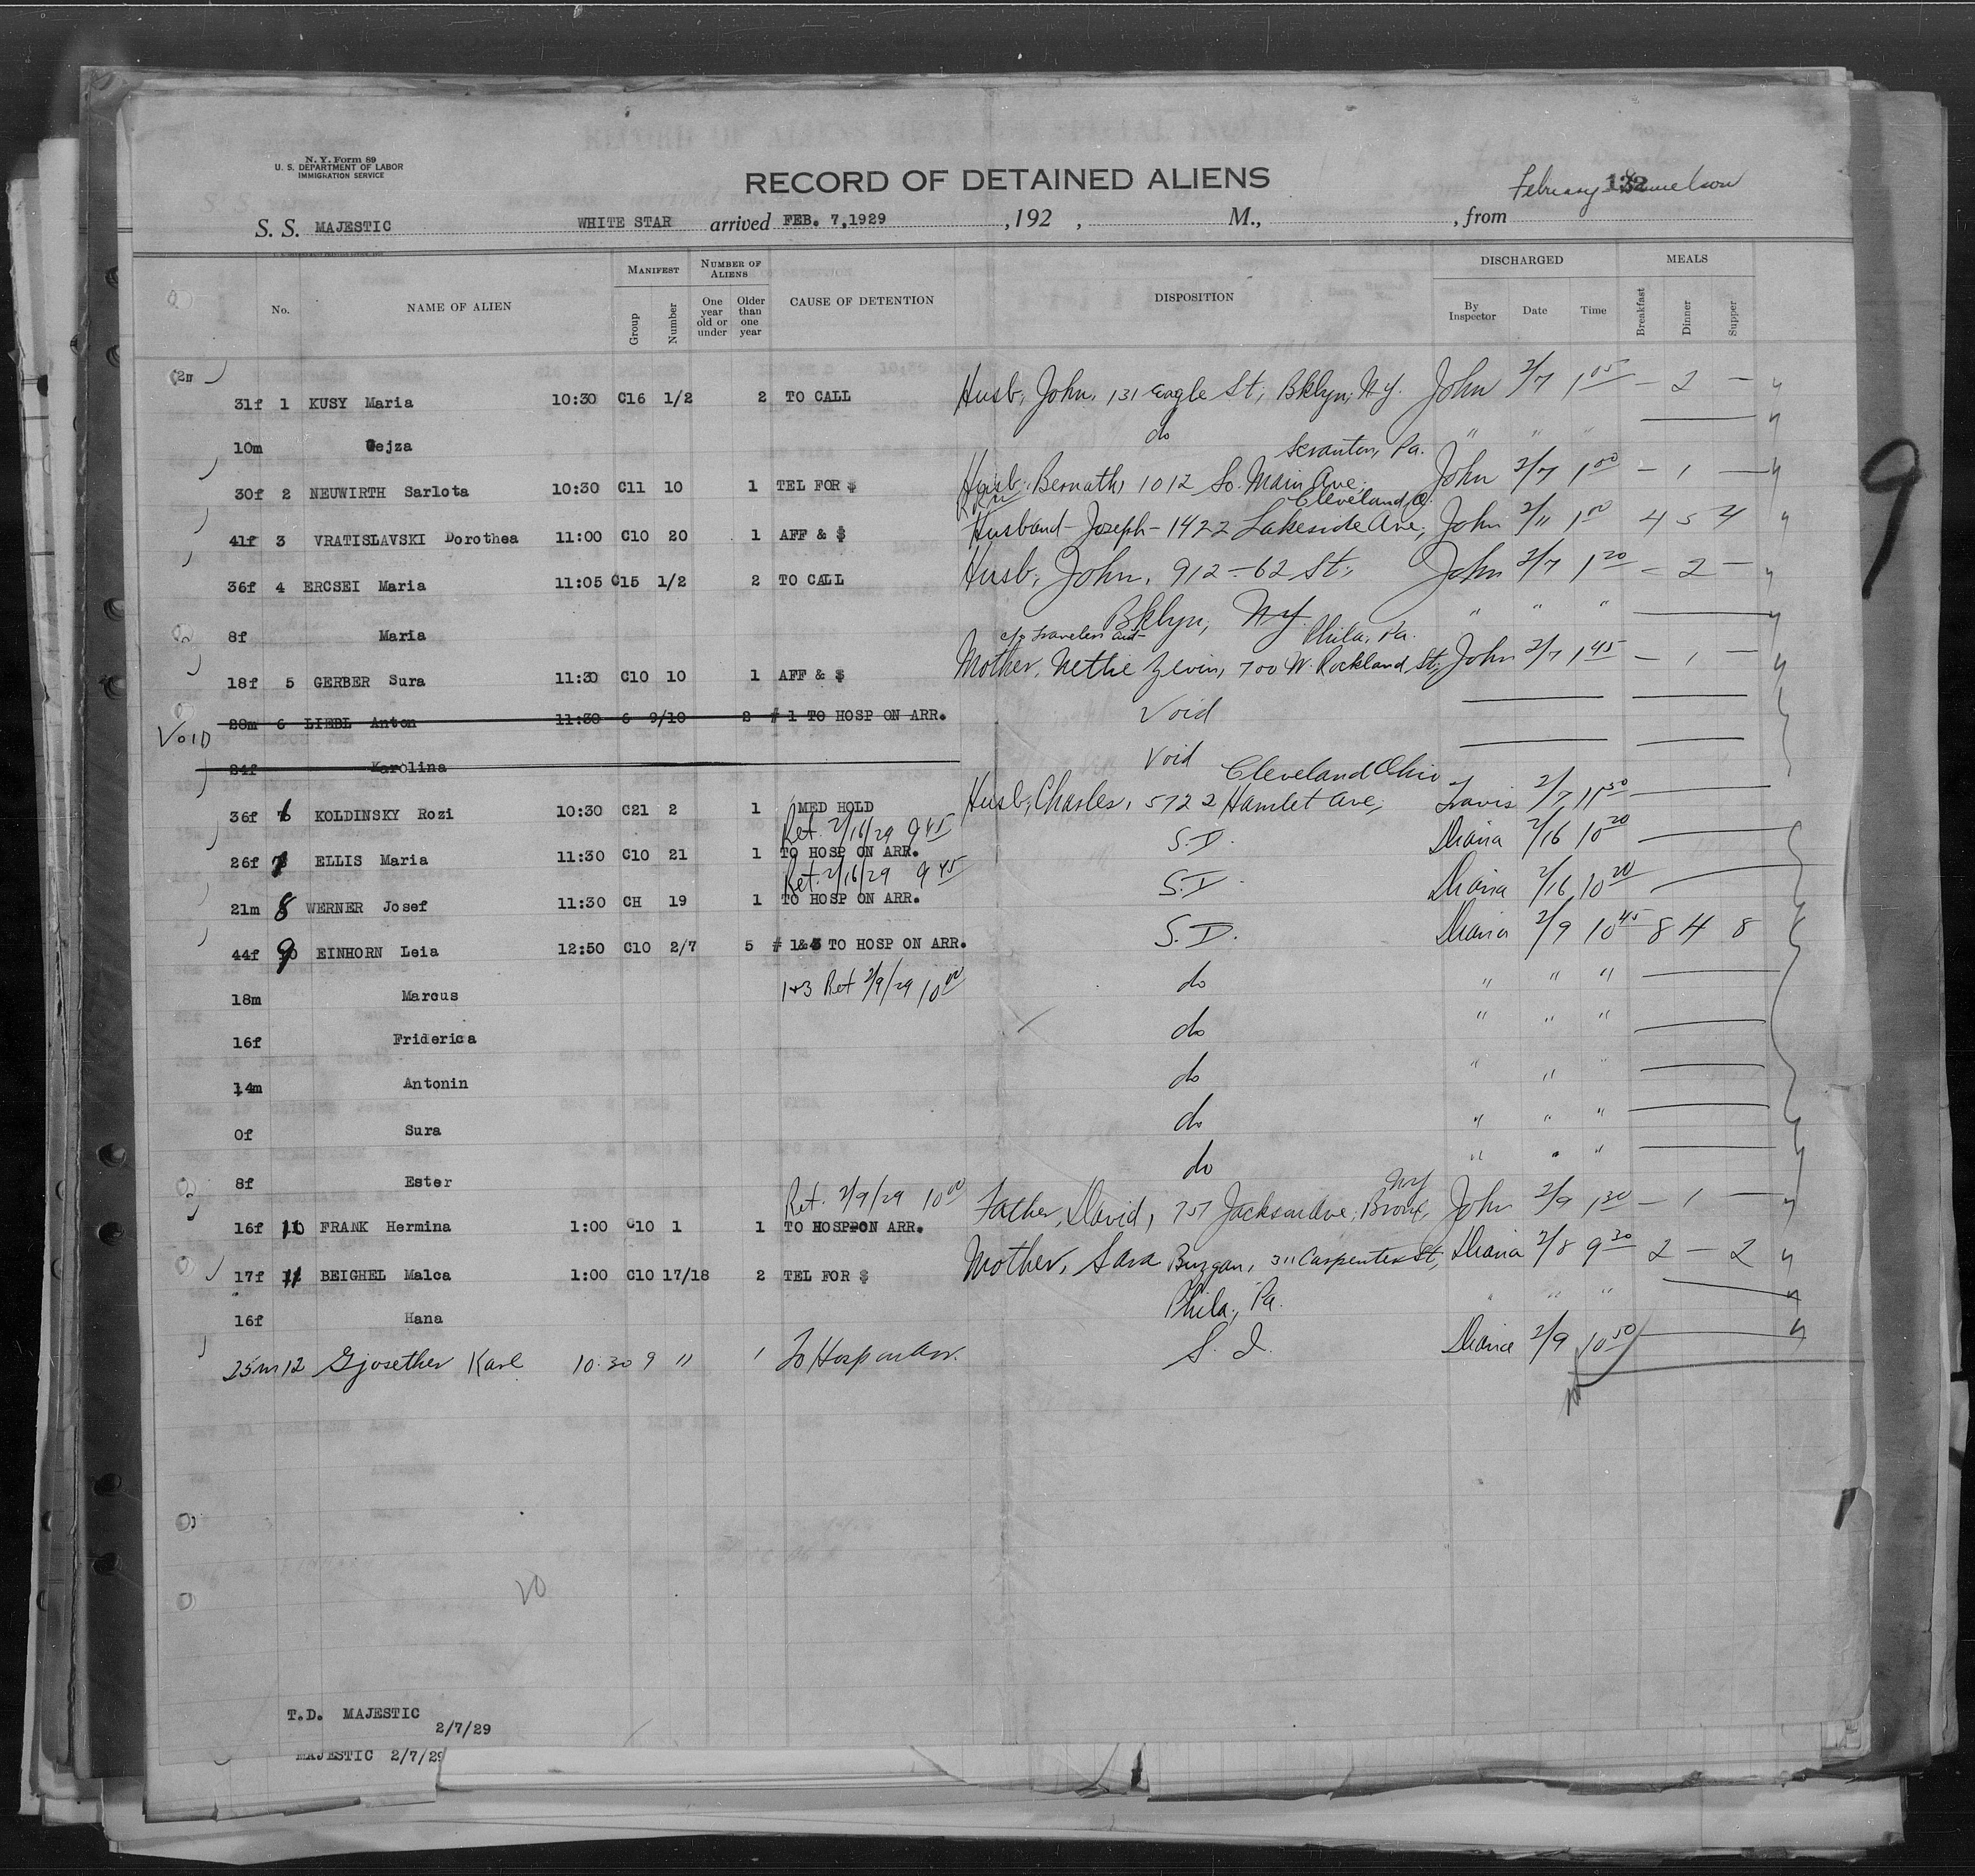 N. Y. Form 89
U. S. DEPARTMENT OF LABOR
IMMIGRATION SERVICE
RECORD OF DETAINED ALIENS
February 132
S. S. MAJESTIC WHITE STAR arrived FEB. 7,1929 , 192 , M., , from
No. NAME OF ALIEN MANIFEST Group Number NUMBER OF ALIENS One year old or under Older than one year CAUSE OF DETENTION DISPOSITION DISCHARGED By Inspector Date Time MEALS Breakfast Dinner Supper
31f 1 KUSY Maria 10:30 C16 1/2 2 TO CALL Husb, John, 131 Eagle St, Bklyn, N.Y. John 2/7 1 05 — 2 —
10m Gejza do " " "
Scranton, Pa.
30f 2 NEUWIRTH Sarlota 10:30 C11 10 1 TEL FOR $ Husb, Bernath, 1012 So. Main Ave. John 2/7 1 00 — 1 —
Cleveland, O.
41f 3 VRATISLAVSKI Dorothea 11:00 C10 20 1 AFF & $ Husband - Joseph - 1422 Lakeside Ave, John 2/11 1 00 4 5 4
36f 4 ERCSEI Maria 11:05 C15 1/2 2 TO CALL Husb, John, 912 - 62 St, John 2/7 1 20 — 2 —
8f Maria Bklyn, N.Y. " " "
c/o Travelers Aid Phila, Pa.
18f 5 GERBER Sura 11:30 C10 10 1 AFF & $ Mother, Nettie Zevin, 700 W. Rockland St, John 2/7 1 45 — 1 —
VOID 28m 6 LIEBL Anton 11:30 6 9/10 2 # 1 TO HOSP ON ARR. Void
24f Karolina Void
Cleveland Ohio
36f 6 KOLDINSKY Rozi 10:30 C21 2 1 MED HOLD Husb, Charles, 5722 Hamlet Ave, Travis 2/7 11 50
Ret. 2/16/29 9 45
26f 7 ELLIS Maria 11:30 C10 21 1 TO HOSP ON ARR. S.I. 2/16 10 20
Ret. 2/16/29 9 45
21m 8 WERNER Josef 11:30 CH 19 1 TO HOSP ON ARR. S.I. 2/16 10 20
44f 9 EINHORN Leia 12:50 C10 2/7 5 # 1&3 TO HOSP ON ARR. S.I. 2/9 10 45 8 4 8
18m Marcus 1+3 Ret 2/9/29 10 00 do " " "
16f Friderica do " " "
14m Antonin do " " "
0f Sura do " " "
8f Ester do " " "
Ret. 2/9/29 10 00 N.Y.
16f 10 FRANK Hermina 1:00 C10 1 1 TO HOSPPON ARR. Father, David, 757 Jackson Ave, Bronx, John 2/9 1 30 — 1 —
17f 11 BEIGHEL Malca 1:00 C10 17/18 2 TEL FOR $ Mother, Sara Buzgan, 311 Carpenter St, 2/8 9 30 2 — 2
16f Hana Phila., Pa. " " "
25m 12 Gjosether Karl 10:30 9 11 1 To Hosp on Arr. S. I. 2/9 10 50
20
T.D. MAJESTIC
2/7/29
MAJESTIC 2/7/29
9